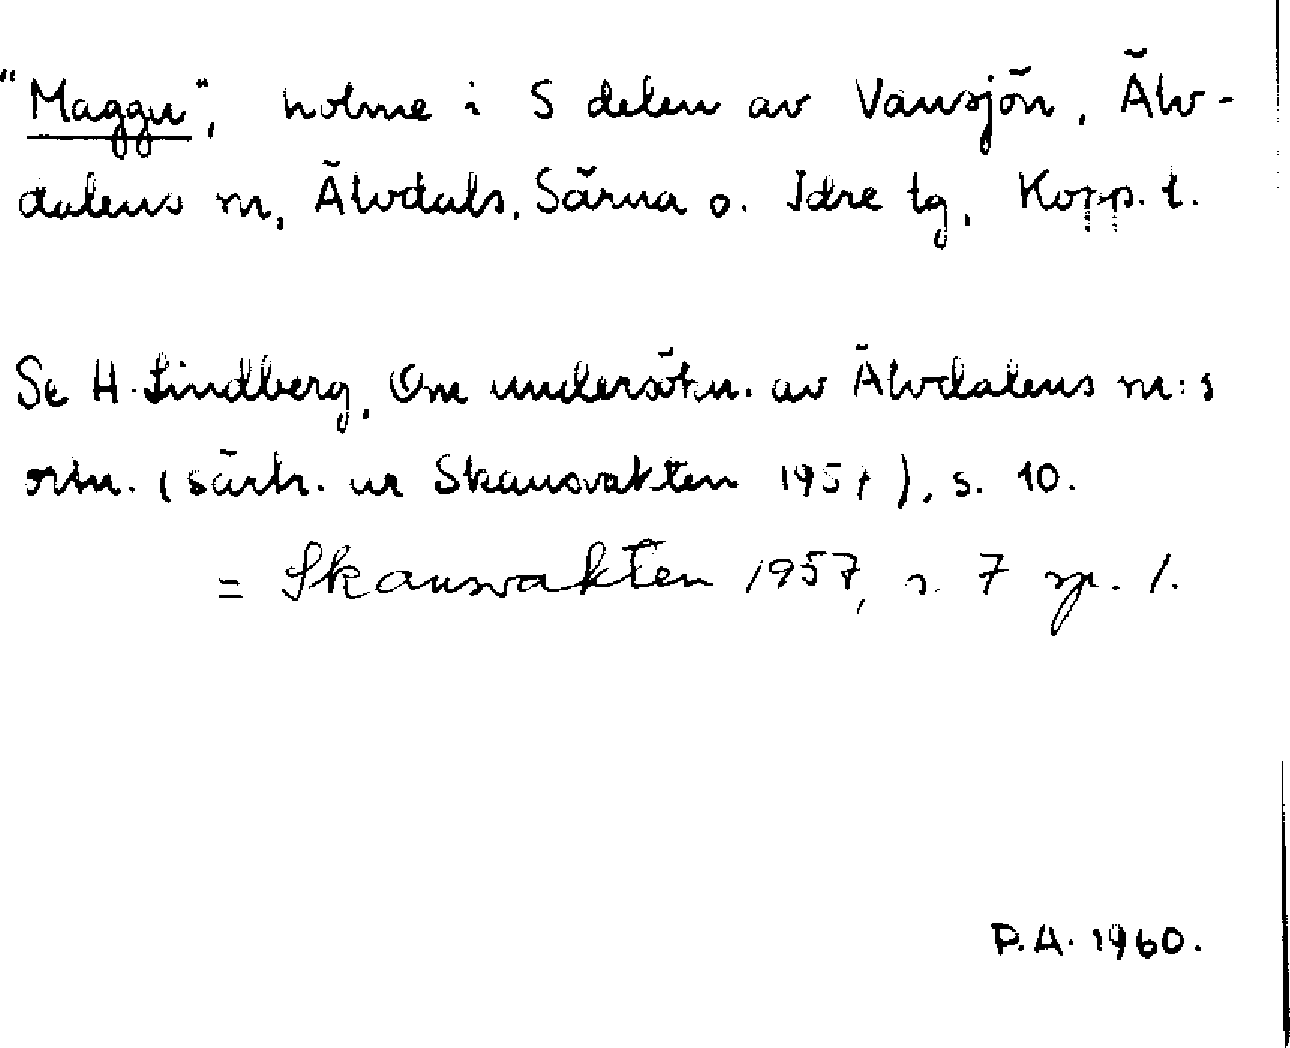 "Maggu", holme i S delen av Vansjön, Älv-
dalens sn, Älvdals, Särna o. Idre tg, Kopp. l.
Se H. Lindberg, Om undersökn. av Älvdalens sn:s
ortn. (särtr. ur Skansvakten 1957), s. 10.
= Skansvakten 1957, s. 7 sp. 1.
P.A. 1960.